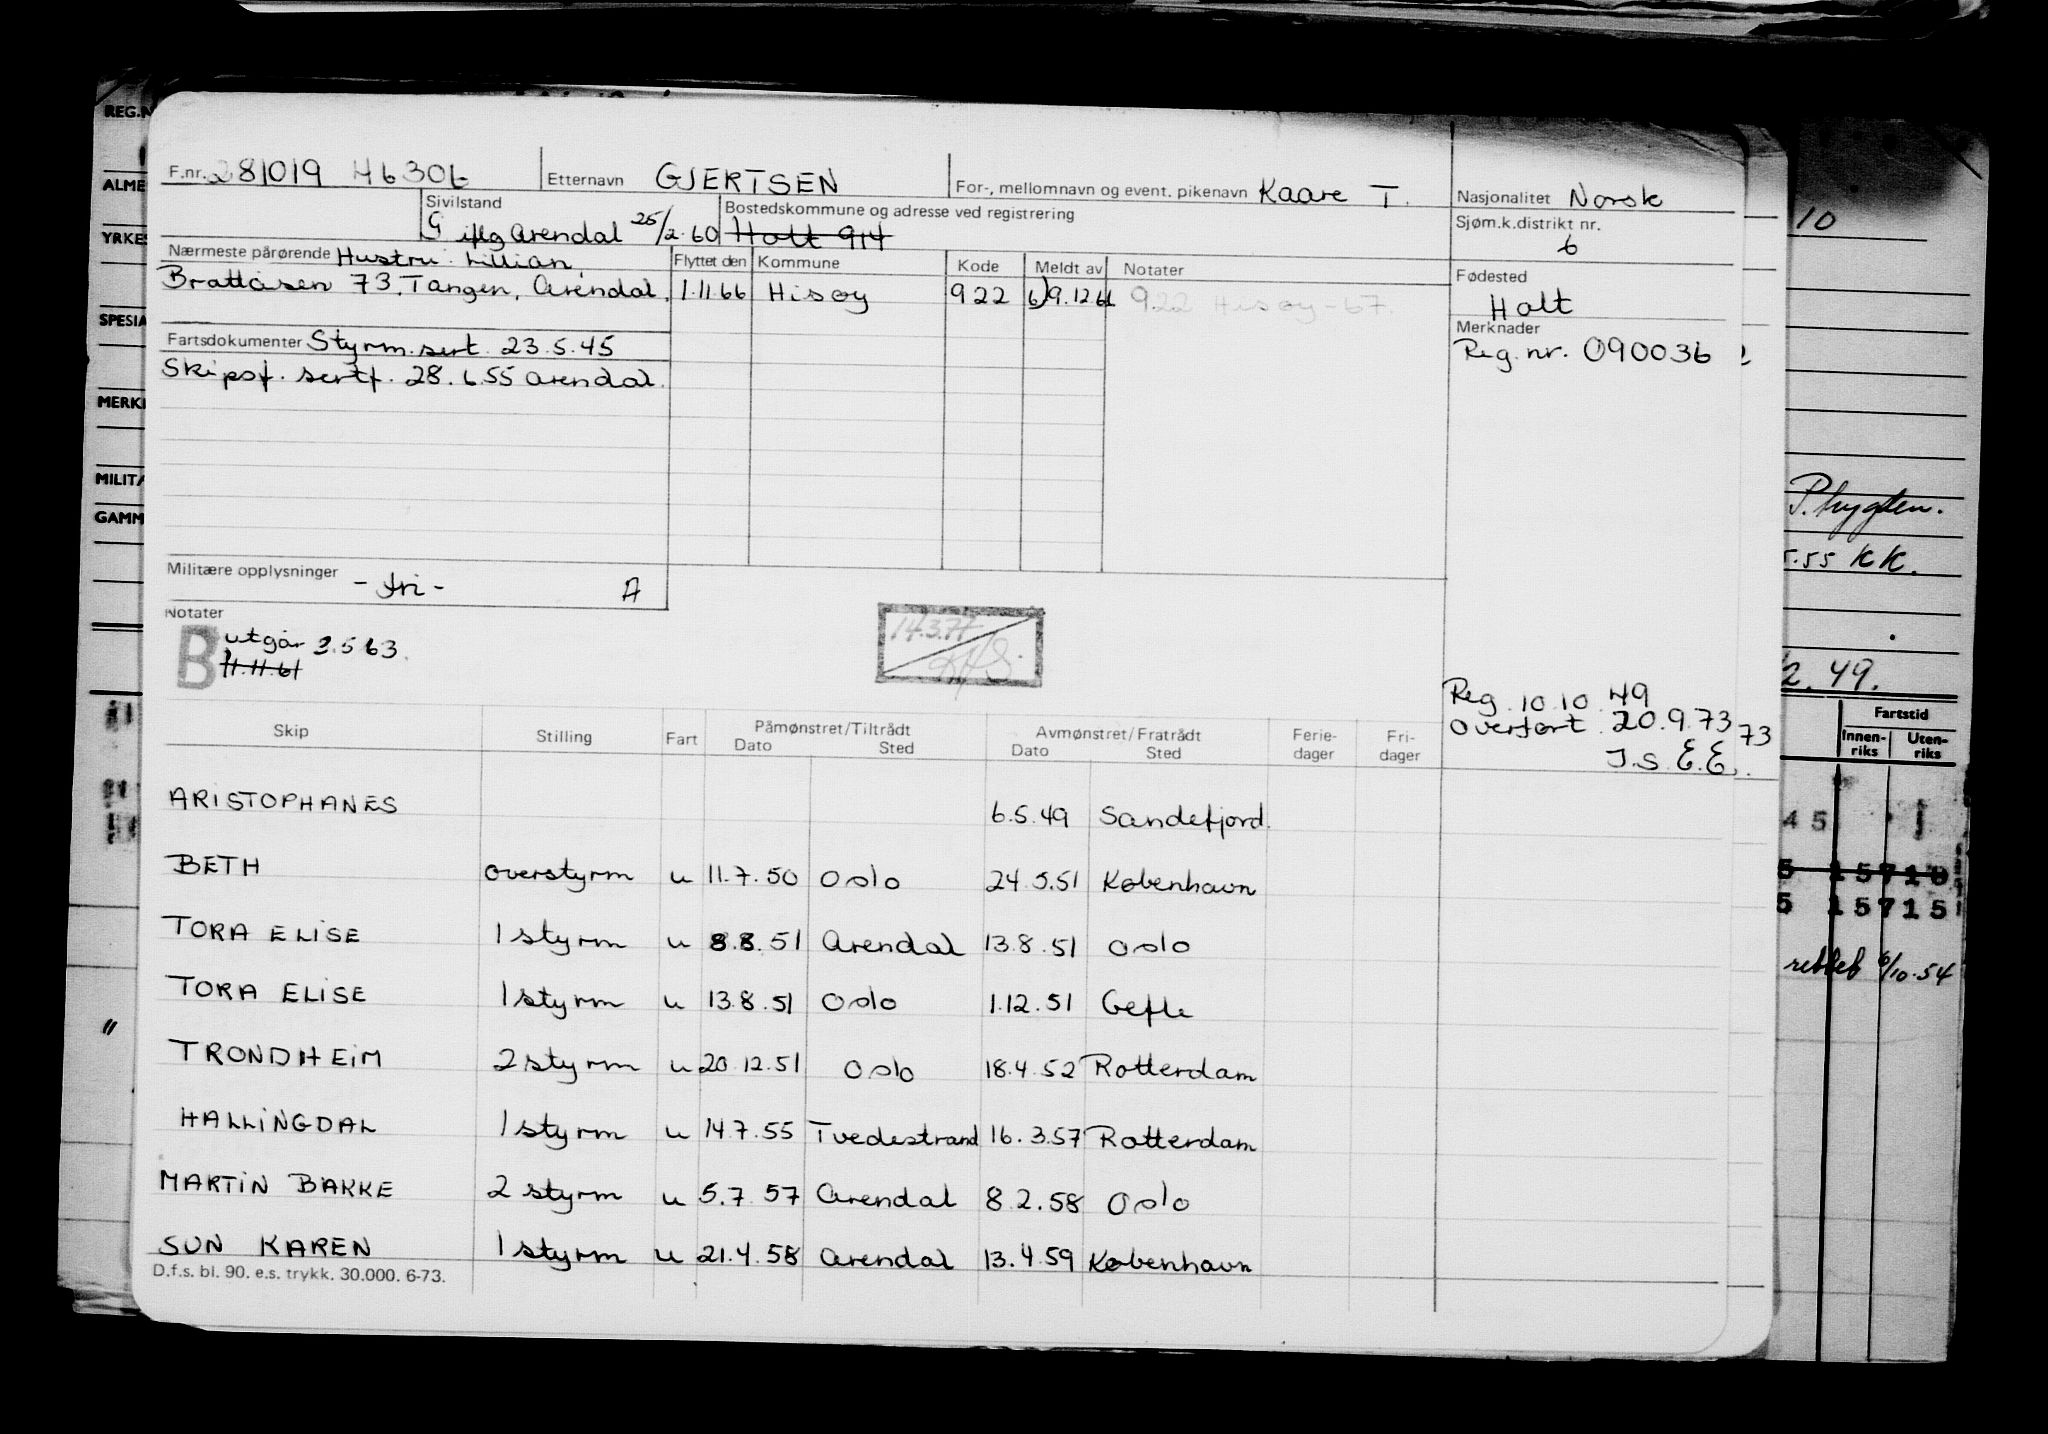 REG.N
ALME
YRKES
SPESIA
MERK
MILITÆ
GAMM
F.nr. 281019 46306 Etternavn GJERTSEN For-, mellomnavn og event. pikenavn Kaare T. Nasjonalitet Norsk
Sivilstand G iflg Arendal 25/2.60 Bostedskommune og adresse ved registrering Holt 914 Sjøm.k.distrikt nr. 6
10
Nærmeste pårørende Hustru: Lillian, Flyttet den Kommune Kode Meldt av Notater Fødested
Brattåsen 73, Tangen, Arendal. 1.11.66 Hisøy 922 6) 9.12.66 922 Hisøy-67. Holt
Fartsdokumenter Styrm.sert. 23.5.45 Merknader
Skipsf. sertf. 28.6.55 Arendal. Reg.nr. 090036
P.
.55 KK.
Militære opplysninger -fri- A
Notater
B utgår 3.5 63.
11.11.61
14.3.77
2.49.
Reg. 10.10.49
Overført 20.9.73 73
J.S. E.E.
Skip Stilling Fart Påmønstret/Tiltrådt Avmønstret/Fratrådt Ferie- Fri-
Dato Sted Dato Sted dager dager
Fartstid
Innen- Uten-
riks riks
ARISTOPHANES 6.5.49 Sandefjord.
45
BETH overstyrm u 11.7.50 Oslo 24.5.51 København
5 15715
TORA ELISE 1 styrm u 8.8.51 Arendal 13.8.51 Oslo
rettet 6/10.54
TORA ELISE 1 styrm u 13.8.51 Oslo 1.12.51 Gefle
"
TRONDHEIM 2 styrm u 20.12.51 Oslo 18.4.52 Rotterdam
HALLINGDAL 1 styrm u 14.7.55 Tvedestrand 16.3.57 Rotterdam
MARTIN BAKKE 2 styrm u 5.7.57 Arendal 8.2.58 Oslo
SUN KAREN 1 styrm u 21.4.58 Arendal 13.4.59 København
D.f.s. bl. 90. e.s. trykk. 30.000. 6-73.